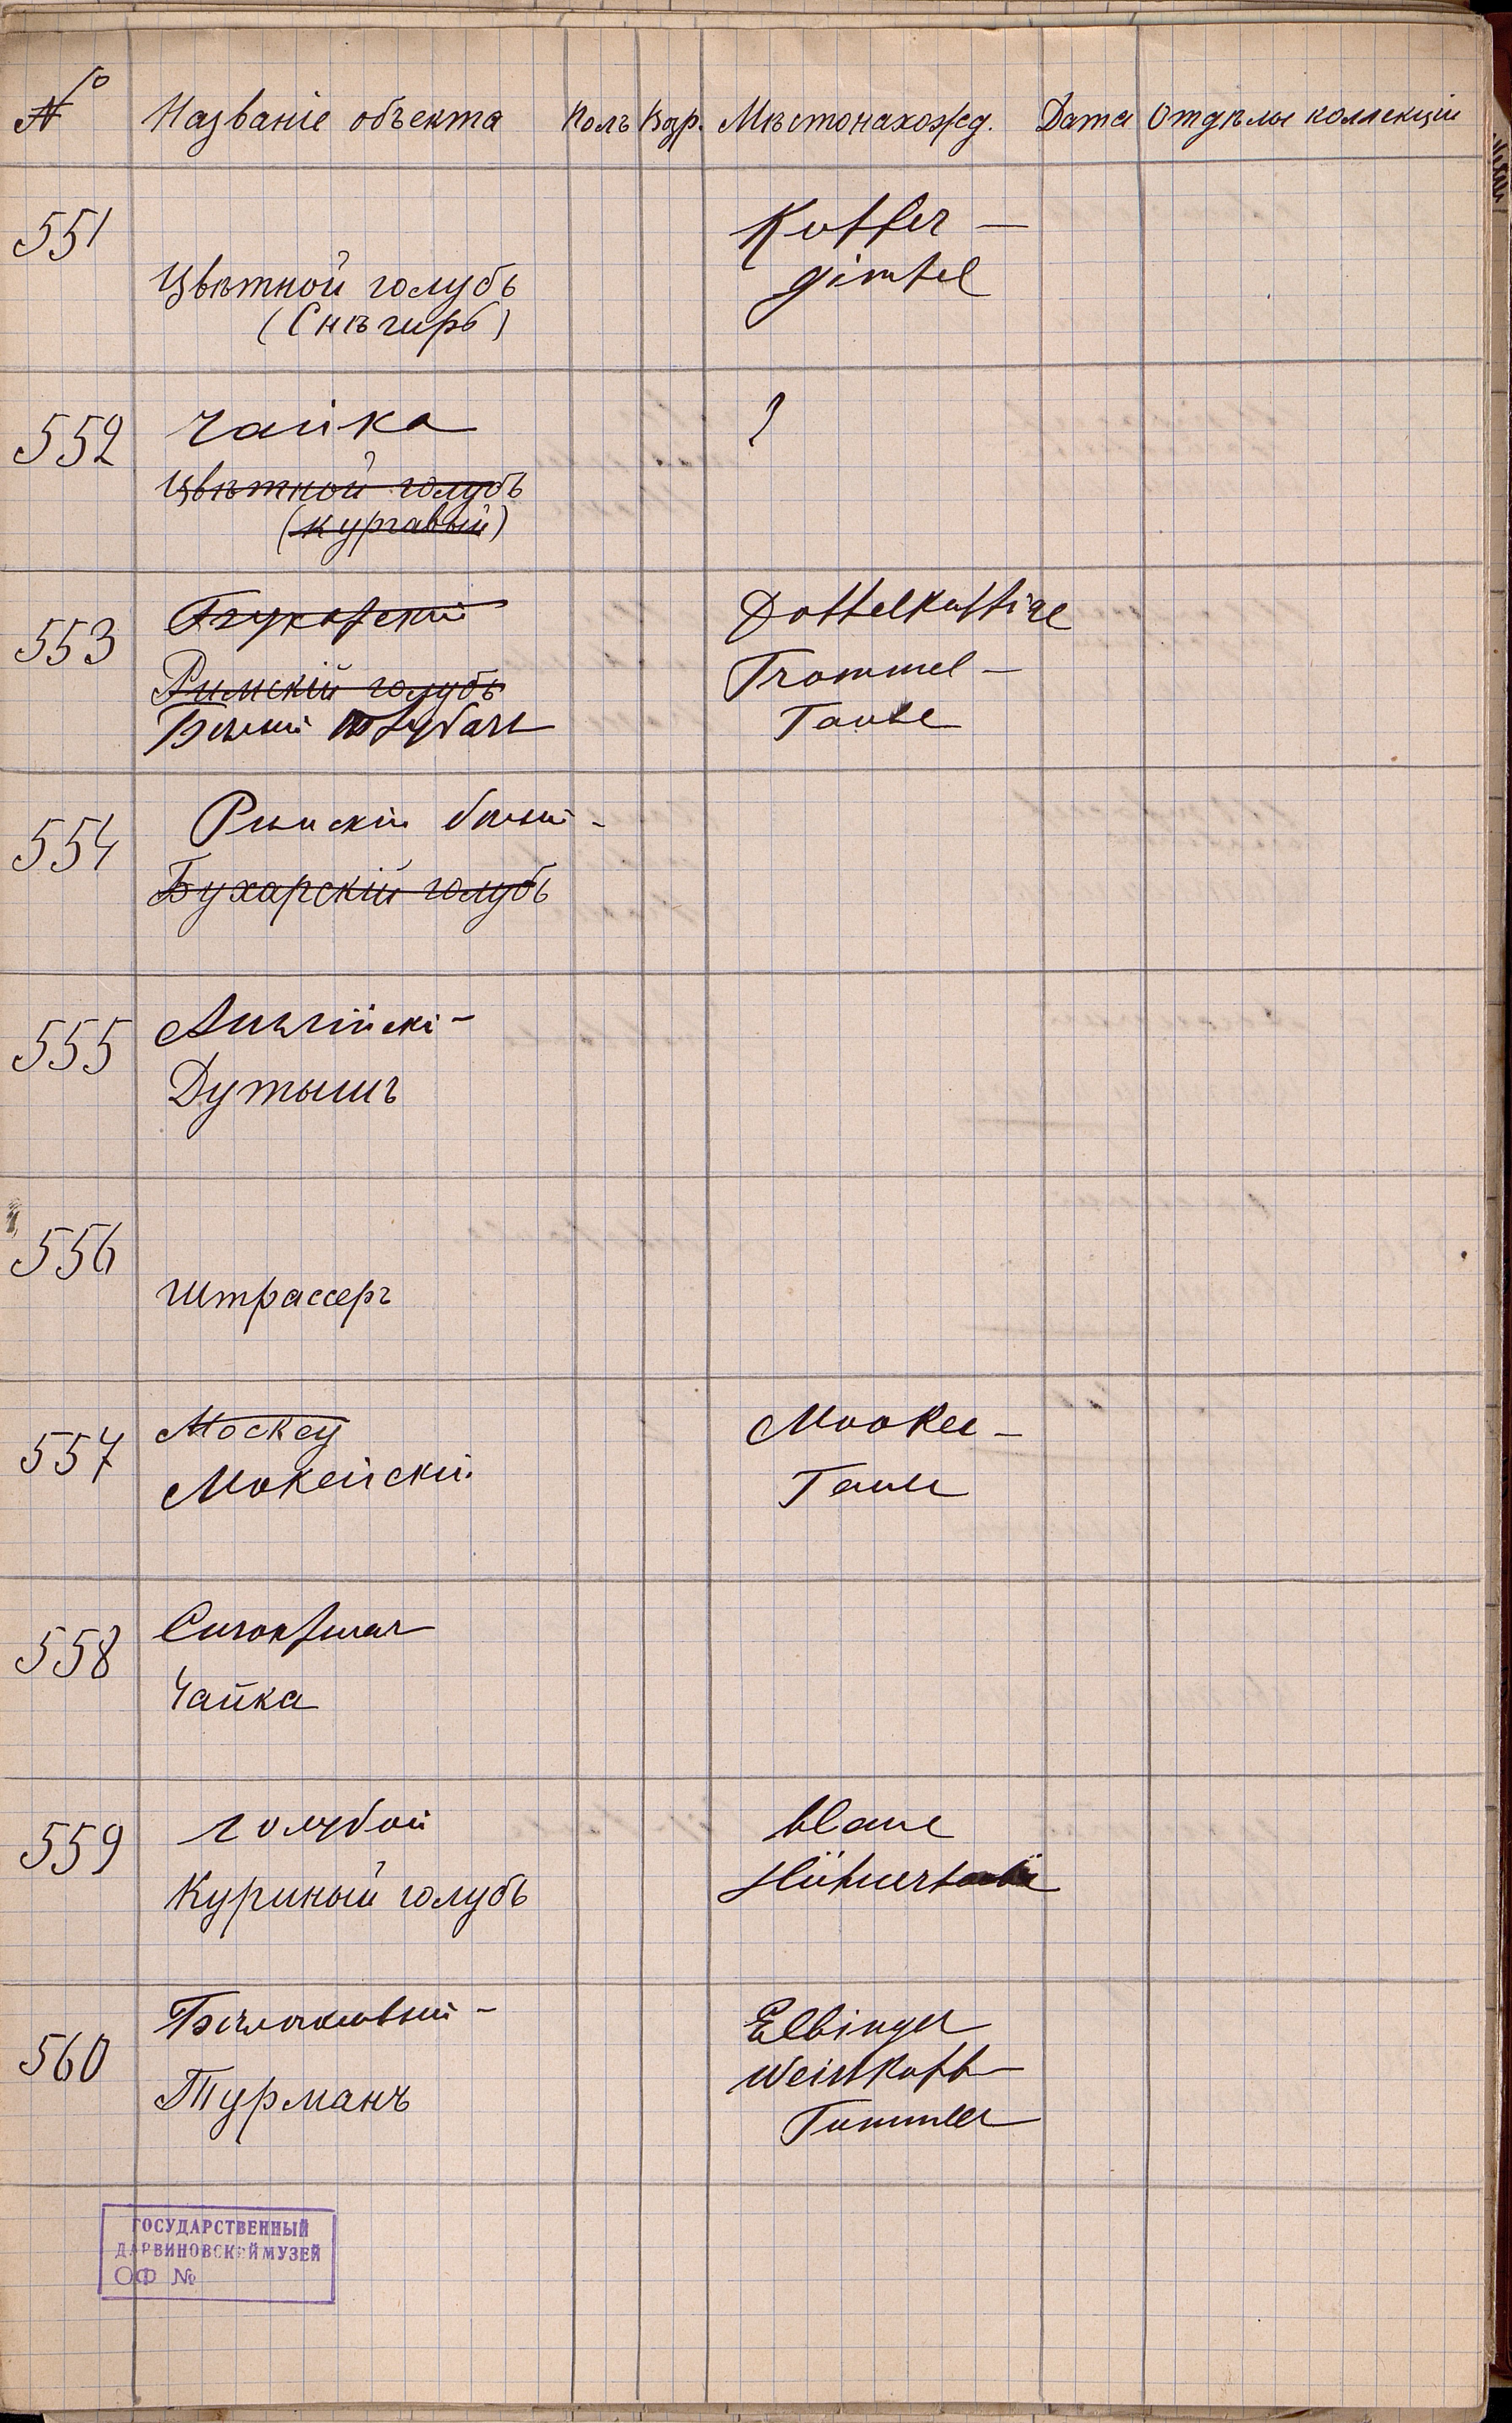 № Названіе объекта Полъ Возр. Мѣстонахожд. Дата Отдѣлы коллекціи
551 Kupfer –
gimpel
Цвѣтной голубь
(Снѣгирь)
552 Чайка ?
Цвѣтной голубь
(курчавый)
553 Doppelkuppige
Римскій голубь Trommel –
Бѣлый Taube
554 Римскій бѣлый –
Бухарскій голубь
555 Англійскі –
Дутышъ
556
Штрассеръ
557 Mookee –
Мокейскій Taube
558
Чайка
559 Голубой blaue
Куриный голубь Hühnertaube
560 Бѣлоголовый – Elbinger
Weisskopf
Турманъ Tümmler
ГОСУДАРСТВЕННЫЙ
ДАРВИНОВСКИЙ МУЗЕЙ
ОФ №